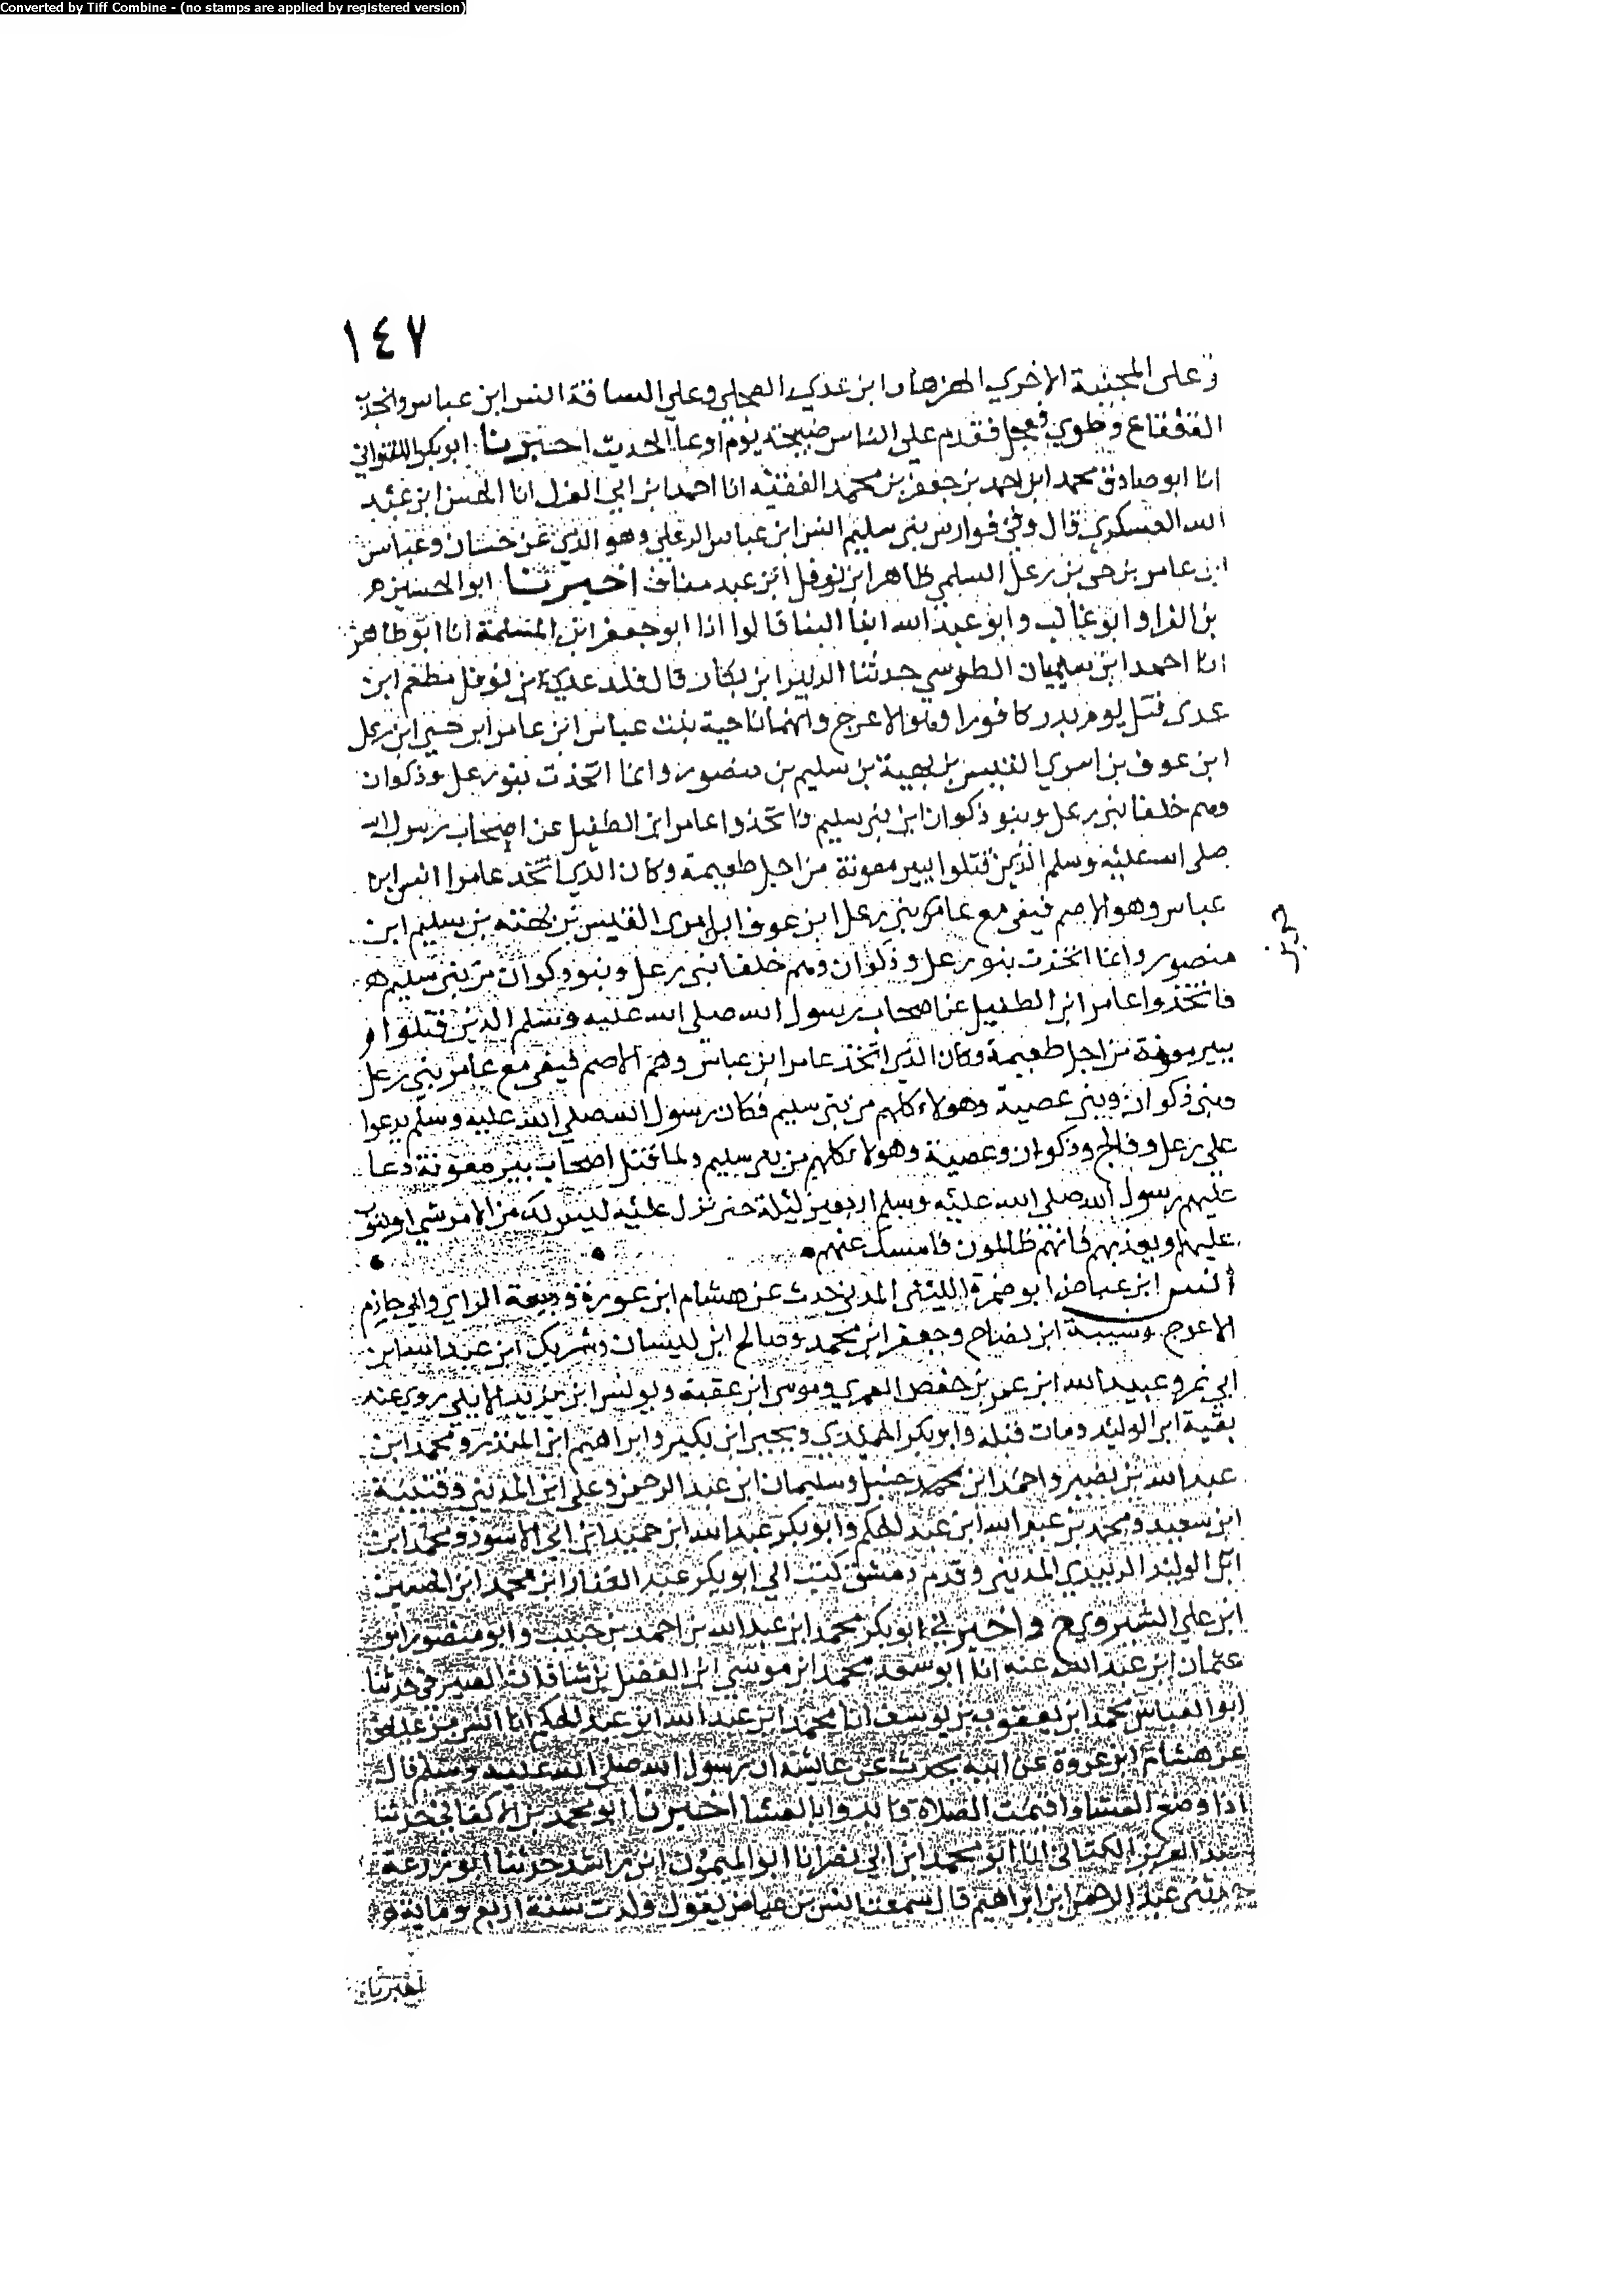 Converted by Tiff Combine - (no stamps are applied by registered version)
١٤٧
وعلى المجنبة الاخرى الهزهاز ابن عدي العجلي وعلى الساقة انس ابن عباس وانجذب
القعقاع وطوي وتعجل فقدم على الناس صبيحة يوم اوعا الحديث اخبرنا ابو بكر اللفتواني
انا ابو صادق محمد ابن احمد بن جعفر بن محمد الفقيه انا احمد ابن ابي العزل انا الحسن ابن عبد
الله العسكري قال وفي فوارس بني سليم انس ابن عباس الرعلي وهو الذي عن حسان وعباس
ابن عامر بن حي بن رعل السلمي ظاهر ابن نوفل ابن عبد مناف اخبرنا ابو الحسين
بن الفرا وابو غالب وابو عبد الله ابنا البنا قالوا انا ابو جعفر ابن المسلمة انا ابو طاهر
انا احمد ابن سليمان الطوسي حدثنا الزبير ابن بكار قال فلد عدي بن نوفل مطعم ابن
عدى قتل يوم بدر كافورا وهو الاعرج وامهما ناحية بنت عباس ابن عامر ابن حيي ابن رعل
ابن عوف بن امري القيس بن بهية بن سليم بن منصور وانما اتخذت بنو رعل وذكوان
وهم خلفا بني رعل وبنو ذكوان ابن بني سليم فاتخذوا عامر ابن الطفيل عن اصحاب رسول الله
صلى الله عليه وسلم الذين قتلوا ببير معونة من اجل طعيمة وكان الذي اتخذ عامرا انس ابن
عباس وهو الاصم فيفي مع عامر بني رعل ابن عوف ابن امرى القيس بن بهثه بن سليم ابن
منصور وانما اتخذت بنو رعل وذكوان وهم خلفا بني رعل وبنو وكوان من بني سليم
فاتخذوا عامر ابن الطفيل عن اصحاب رسول الله صلى الله عليه وسلم الذين قتلوا
ببير معونة من اجل طعيمة وكان الذي اتخذ عامر ابن عباس وهم الاصم فيفي مع عامر بني رعل
وبني ذكوان وبني عصية وهولاء كلهم من بني سليم فكان رسول الله صلى الله عليه وسلم يدعوا
على رعل وفالج وذكوان وعصية وهولاء كلهم من بني سليم ولما قتل اصحاب بير معونة دعا
عليهم رسول الله صلى الله عليه وسلم اربعين ليلة حتى نزل عليه ليس لك من الامر شي او يتوب
عليهم او يعذبهم فانهم ظالمون فامسك عنهم
انس ابن عياض ابو ضمرة الليثي المدني حدث عن هشام ابن عروة وربيعة الراي وابي حازم
الاعرج وشيبة ابن نصاح وجعفر ابن محمد وصالح ابن كيسان وشريك ابن عبد الله ابن
ابي نمر وعبيد الله ابن عمر بن حفص العمري وموسى ابن عقبة ويونس ابن يزيد الايلي روى عنه
بقية ابن الوليد ومات قبله وابو بكر الحميدي ويحيى ابن بكير وابراهيم ابن المنذر ومحمد ابن
عبد الله بن نمير واحمد ابن محمد حنبل وسليمان ابن عبد الرحمن وعلى ابن المديني وقتيبة
ابن سعيد ومحمد بن عبد الله ابن عبد الحكم وابو بكر عبد الله ابن حميد ابن ابي الاسود ومحمد ابن
ابن الوليد الزبيدي المديني وقدم دمشق كتب الي ابو بكر عبد الغفار ابن محمد ابن الحسين
ابن علي الشيروي واخبرني ابو بكر محمد ابن عبد الله بن احمد بن حبيب وابو منصور ابو
عثمان ابن عبد الله عنه انا ابو سعد محمد ابن موسى ابن الفضل بن شاذان الصيرفي حدثنا
ابو العباس محمد ابن يعقوب بن يوسف انا محمد ابن عبد الله ابن عبد الحكم انا انس بن عياض
عن هشام ابن عروة عن ابيه يحدث عن عايشة ان رسول الله صلى الله عليه وسلم قال
اذا وضع العشا واقيمت الصلاة فابدوا بالعشا اخبرنا ابو محمد بن الاكفاني حدثنا
عبد العزيز الكتاني انا ابو محمد ابن ابي نصر انا ابو الميمون ابن راشد حدثنا ابو زرعة
حدثني عبد الرحمن ابن ابراهيم قال سمعت انس بن عياض يقول ولدت سنة اربع ومايه و
اخبرنا